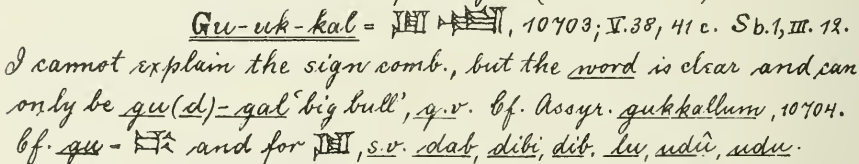 Gu-uk-kal = 𒇻 , 10703; V. 38, 41 c. Sb. 1, III. 12.
I cannot explain the sign comb., but the word is clear and can
only be gu(d)-gal 'big bull', q.v. Cf. Assyr. gukkallum, 10704.
Cf. gu - and for 𒇻, s.v. dab, dibi, dib. lu, udû, udu.